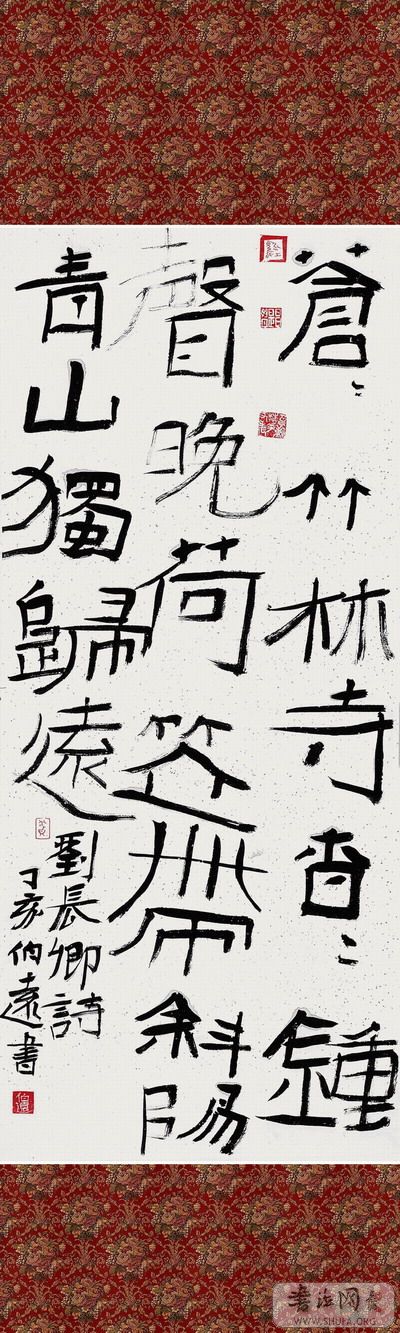 蒼〻竹林寺杳〻鐘
聲晚荷笠帶斜陽
青山獨歸遠
劉長卿詩
丁亥伯遠書
WWW.SHUFA.ORG